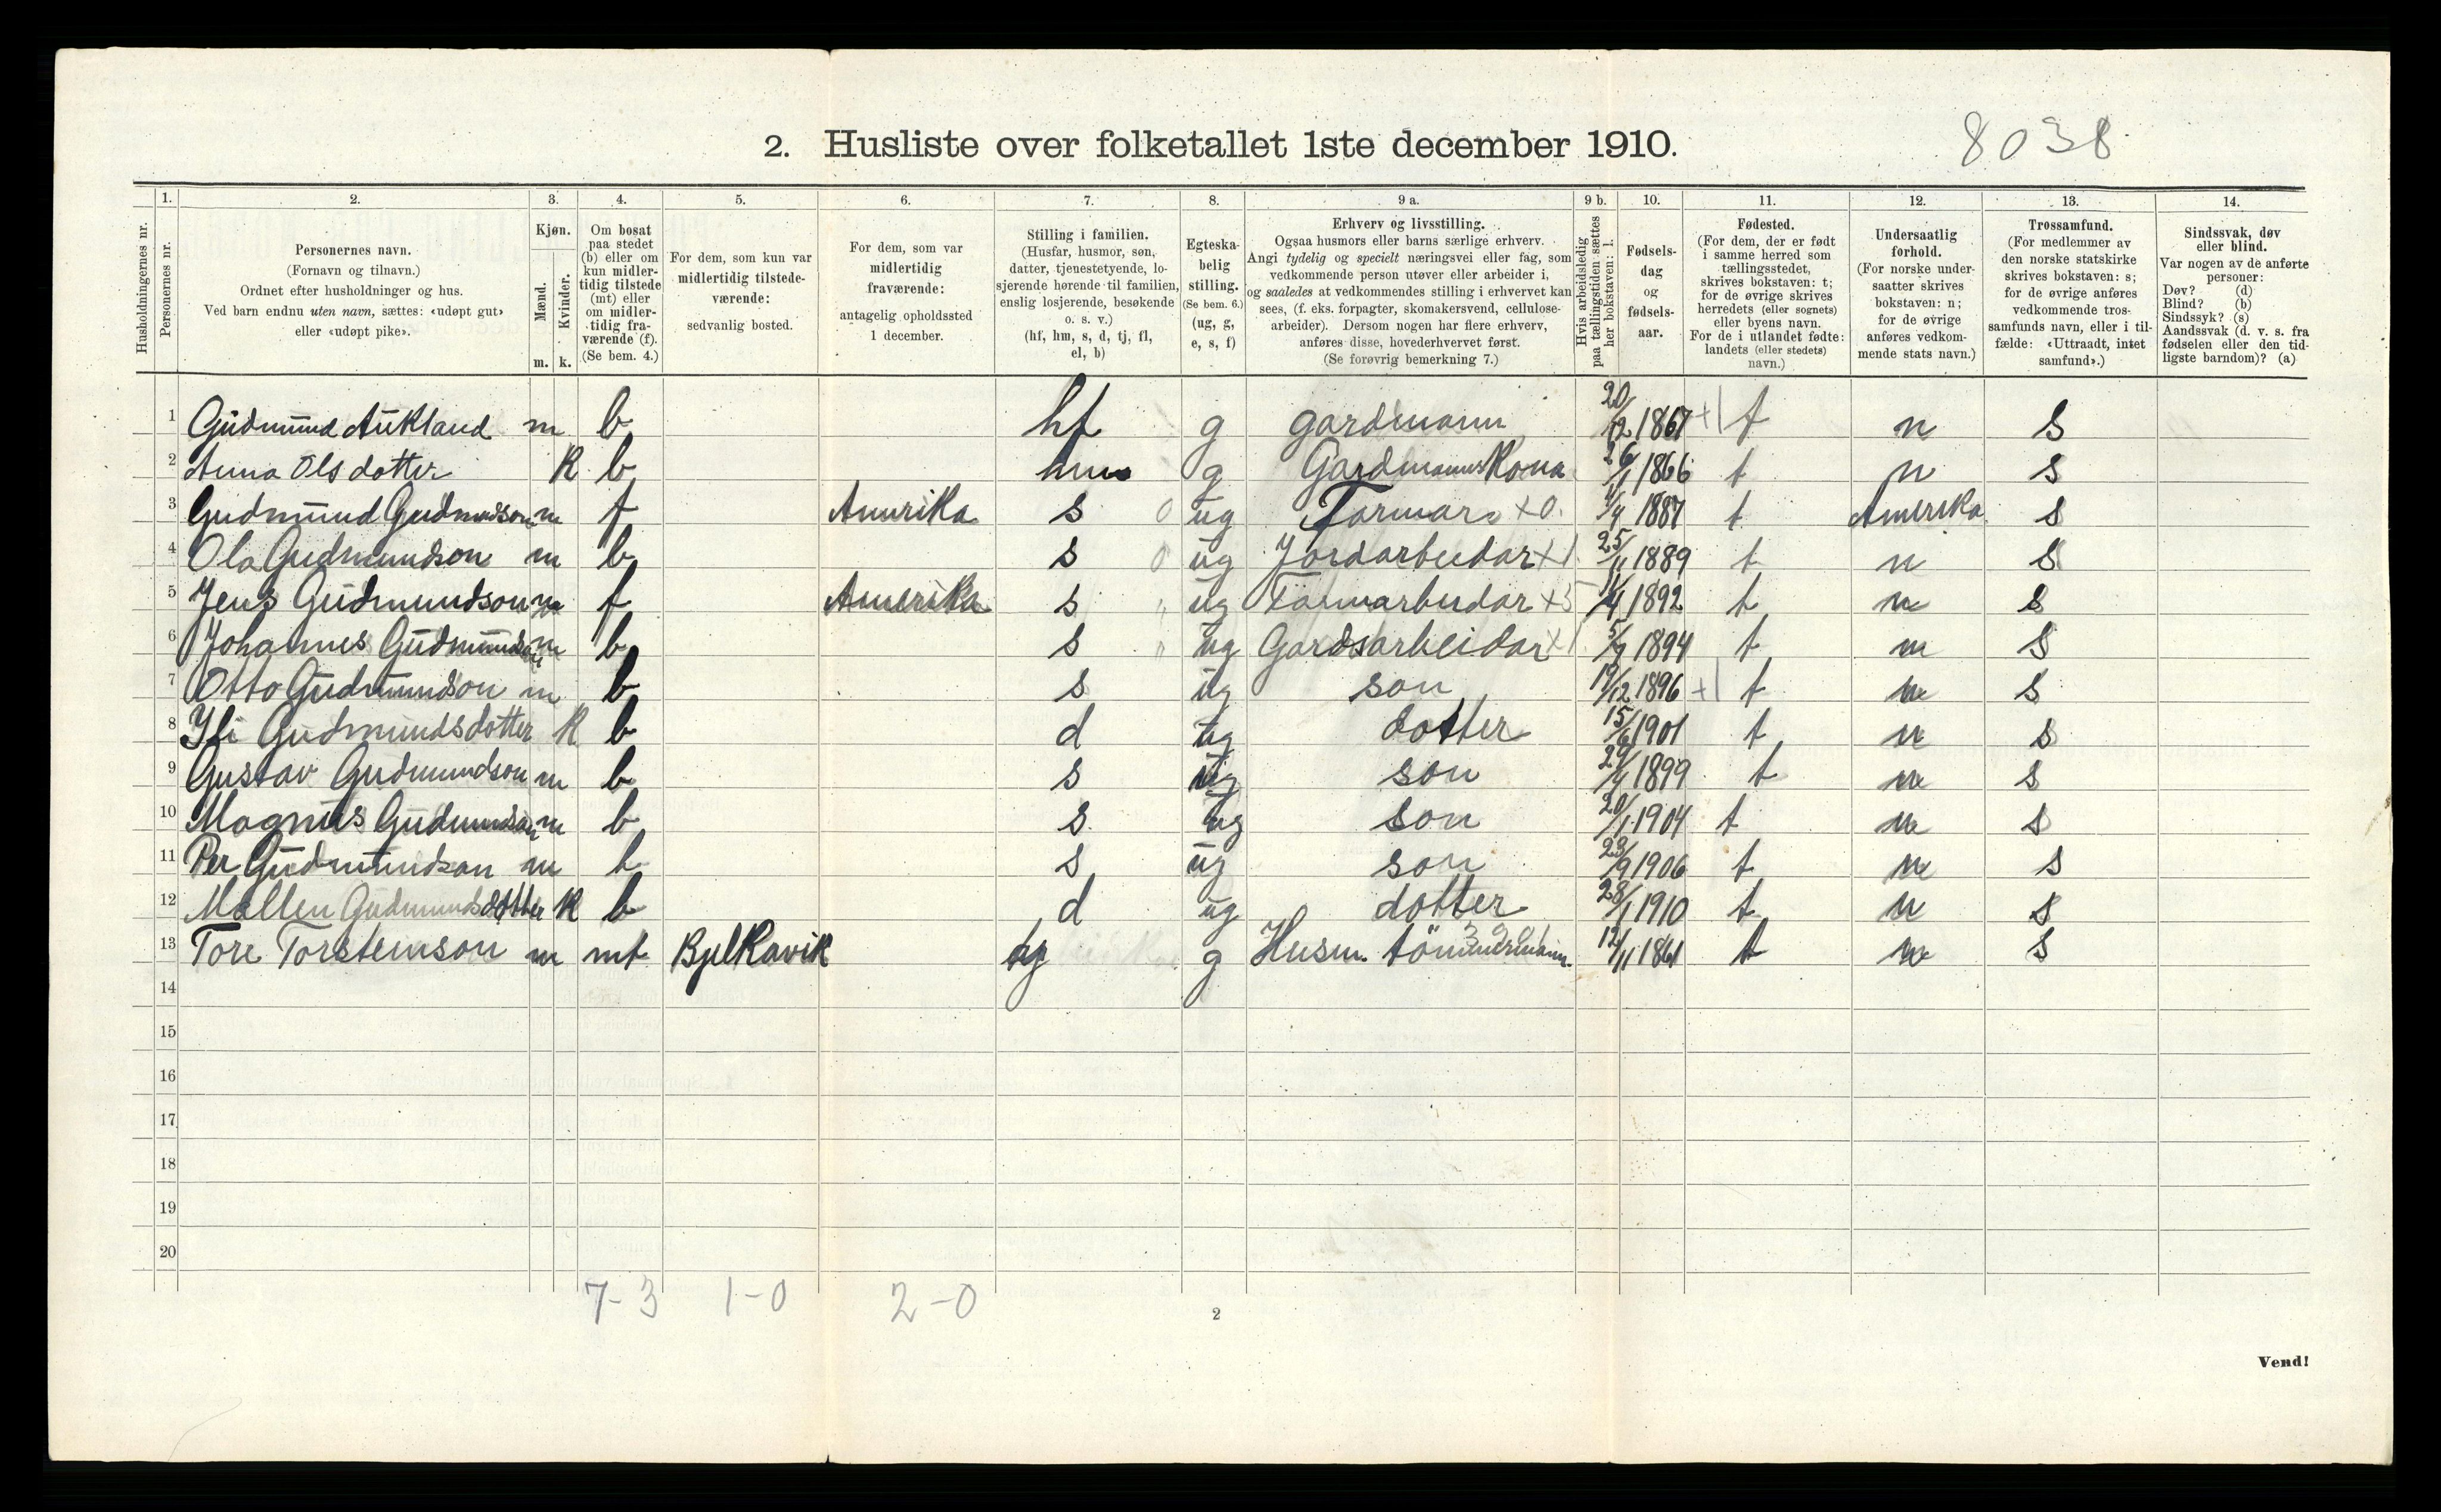 2. Husliste over folketallet 1ste december 1910.
8038
Husholdningernes nr.
1.
Personernes nr.
2.
Personernes navn.
(Fornavn og tilnavn.)
Ordnet efter husholdninger og hus.
Ved barn endnu uten navn, sættes: «udøpt gut»
eller «udøpt pike».
3.
Kjøn.
Mænd.
Kvinder.
m. k.
4.
Om bosat
paa stedet
(b) eller om
kun midler-
tidig tilstede
(mt) eller
om midler-
tidig fra-
værende (f).
(Se bem. 4.)
5.
For dem, som kun var
midlertidig tilstede-
værende:
sedvanlig bosted.
6.
For dem, som var
midlertidig
fraværende:
antagelig opholdssted
1 december.
7.
Stilling i familien.
(Husfar, husmor, søn,
datter, tjenestetyende, lo-
sjerende hørende til familien,
enslig losjerende, besøkende
o. s. v.)
(hf, hm, s, d, tj, fl,
el, b)
8.
Egteska-
belig
stilling.
(Se bem. 6.)
(ug, g,
e, s, f)
9 a.
Erhverv og livsstilling.
Ogsaa husmors eller barns særlige erhverv.
Angi tydelig og specielt næringsvei eller fag, som
vedkommende person utøver eller arbeider i,
og saaledes at vedkommendes stilling i erhvervet kan
sees, (f. eks. forpagter, skomakersvend, cellulose-
arbeider). Dersom nogen har flere erhverv,
anføres disse, hovederhvervet først.
(Se forøvrig bemerkning 7.)
9 b.
Hvis arbeidsledig
paa tællingstiden sættes
her bokstaven: l.
10.
Fødsels-
dag
og
fødsels-
aar.
11.
Fødested.
(For dem, der er født
i samme herred som
tællingsstedet,
skrives bokstaven: t;
for de øvrige skrives
herredets (eller sognets)
eller byens navn.
For de i utlandet fødte:
landets (eller stedets)
navn.)
12.
Undersaatlig
forhold.
(For norske under-
saatter skrives
bokstaven: n;
for de øvrige
anføres vedkom-
mende stats navn.)
13.
Trossamfund.
(For medlemmer av
den norske statskirke
skrives bokstaven: s;
for de øvrige anføres
vedkommende tros-
samfunds navn, eller i til-
fælde: «Uttraadt, intet
samfund».)
14.
Sindssvak, døv
eller blind.
Var nogen av de anførte
personer:
Døv? (d)
Blind? (b)
Sindssyk? (s)
Aandssvak (d. v. s. fra
fødselen eller den tid-
ligste barndom)? (a)
1 Gudmund Aukland m b hf g gardmann 20/12 1867 +1 t n s
2 Anna Olsdotter k b hm g Gardmannskona 26/1 1866 t n s
3 Gudmund Gudmundson m f Amerika s 0 ug Farmar x0. 1887 t Amerika s
4 Ola Gudmundson m b s 0 ug Jordarbeidar x1 25/11 1889 t n s
5 Jens Gudmundson m f Amerika s " ug Farmarbeidar x5 1892 t n s
6 Johannes Gudmundson m b s " ug Gardsarbeidar x1 1894 t n s
7 Otto Gudmundson m b s ug son 19/12 1896 +1 t n s
8 Gudmundsdotter k b d ug dotter 15/6 1901 t n s
9 Gustav Gudmundson m b s ug son 29/4 1899 t n s
10 Magnus Gudmundson m b s ug son 20/1 1904 t n s
11 Per Gudmundson m b s ug son 23/9 1906 t n s
12 Mallen Gudmundsdotter k b d ug dotter 28/1 1910 t n s
13 Tore Torsteinson m mt Bjelkavik g Husm. tömmermann. 12/11 1861 t n s
14
15
16
17
18
19
20
7-3 1-0 2-0
2
Vend!